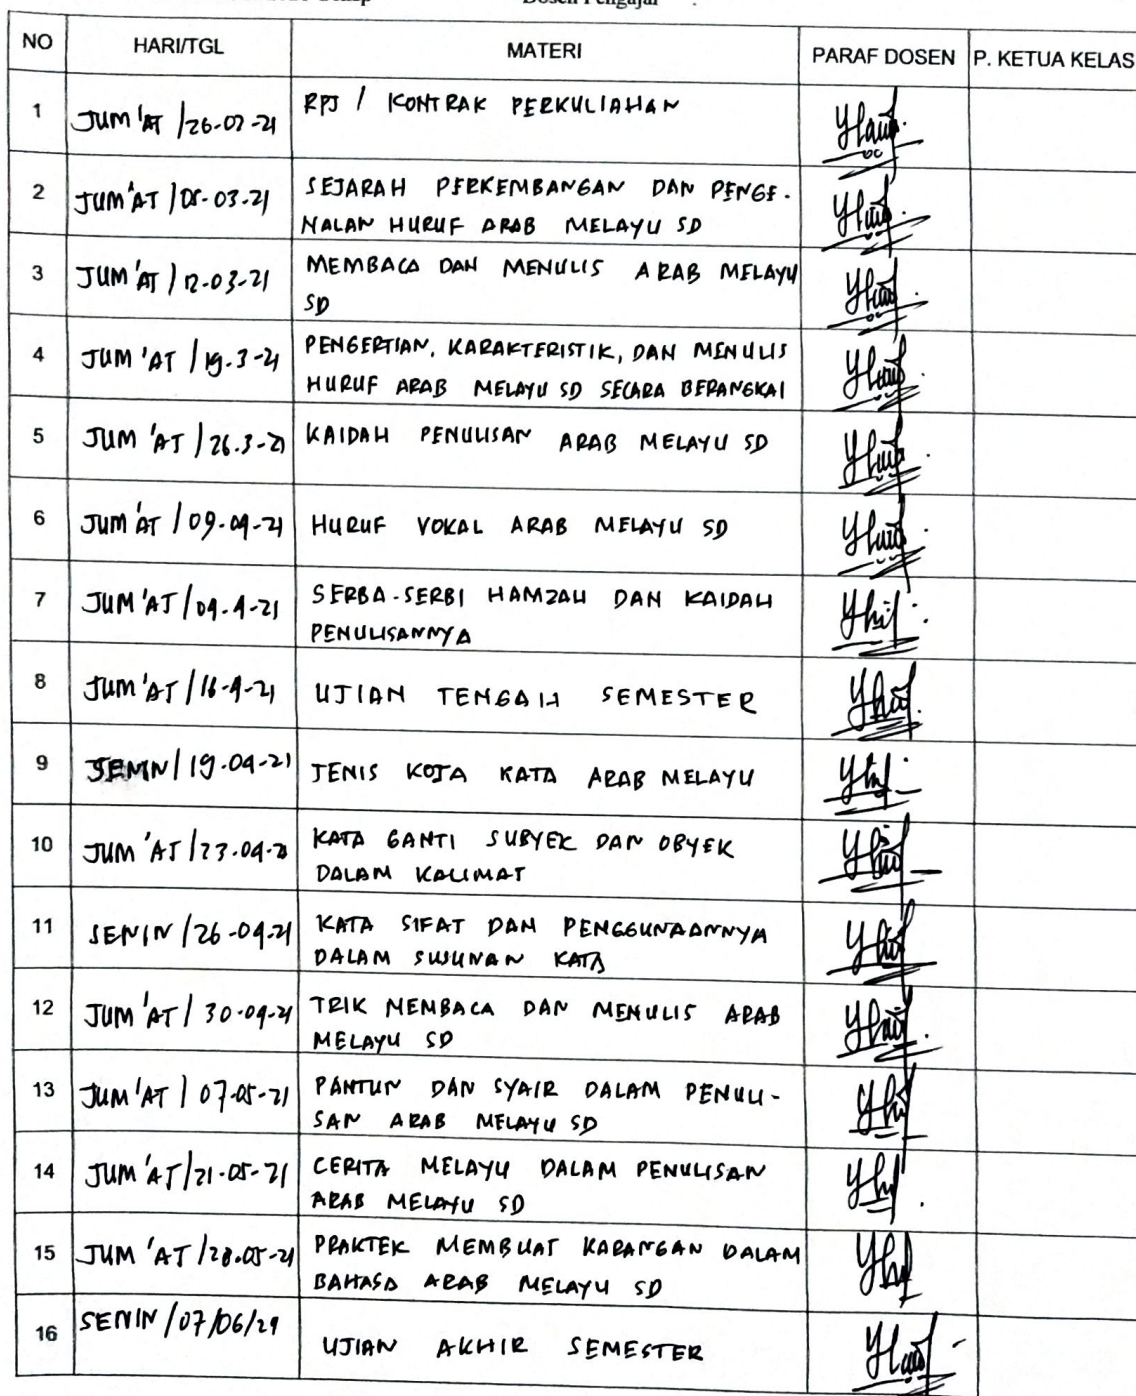 Dosen Pengajar :
NO HARI/TGL MATERI PARAF DOSEN P. KETUA KELAS
1 JUM'AT /26-02-21 RPJ / KONTRAK PERKULIAHAN
2 JUM'AT /05-03-21 SEJARAH PERKEMBANGAN DAN PENGE-
NALAN HURUF ARAB MELAYU SD
3 JUM'AT /12-03-21 MEMBACA DAN MENULIS ARAB MELAYU
SD
4 JUM'AT /19-3-21 PENGERTIAN, KARAKTERISTIK, DAN MENULIS
HURUF ARAB MELAYU SD SECARA BERANGKAI
5 JUM'AT /26-3-21 KAIDAH PENULISAN ARAB MELAYU SD
6 JUM'AT /09-04-21 HURUF VOKAL ARAB MELAYU SD
7 JUM'AT /09-4-21 SERBA-SERBI HAMZAH DAN KAIDAH
PENULISANNYA
8 JUM'AT /16-4-21 UJIAN TENGAH SEMESTER
9 SENIN /19-04-21 JENIS KOTA KATA ARAB MELAYU
10 JUM'AT /23-04-21 KATA GANTI SUBYEK DAN OBYEK
DALAM KALIMAT
11 SENIN /26-04-21 KATA SIFAT DAN PENGGUNAANNYA
DALAM SUSUNAN KATA
12 JUM'AT / 30-04-21 TRIK MEMBACA DAN MENULIS ARAB
MELAYU SD
13 JUM'AT / 07-05-21 PANTUN DAN SYAIR DALAM PENULI-
SAN ARAB MELAYU SD
14 JUM'AT /21-05-21 CERITA MELAYU DALAM PENULISAN
ARAB MELAYU SD
15 JUM'AT /28-05-21 PRAKTEK MEMBUAT KARANGAN DALAM
BAHASA ARAB MELAYU SD
16 SENIN /07/06/21 UJIAN AKHIR SEMESTER